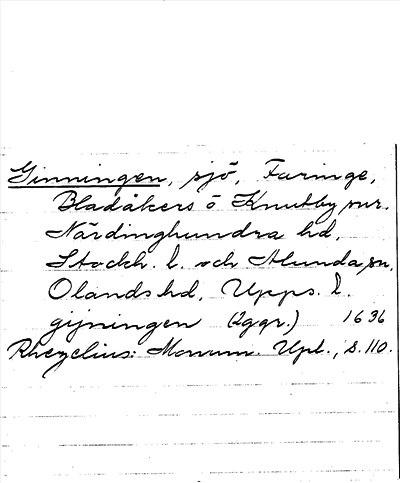 Ginningen, sjö, Faringe,
Bladåkers o Knutby snr.
Närdinghundra hd,
Stockh. l. och Alunda sn,
Olands hd, Upps. l.
gijningen (2ggr.) 1636
Rhezelius: Monum. Upl., s. 110.